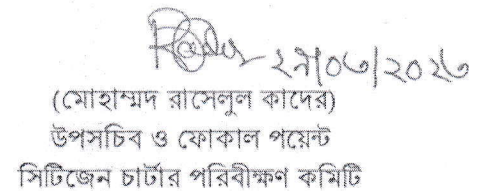 (মোহাম্মদ রাসেলুল কাদের)
উপসচিব ও ফোকাল পয়েন্ট
সিটিজেন চার্টার পরিবীক্ষণ কমিটি